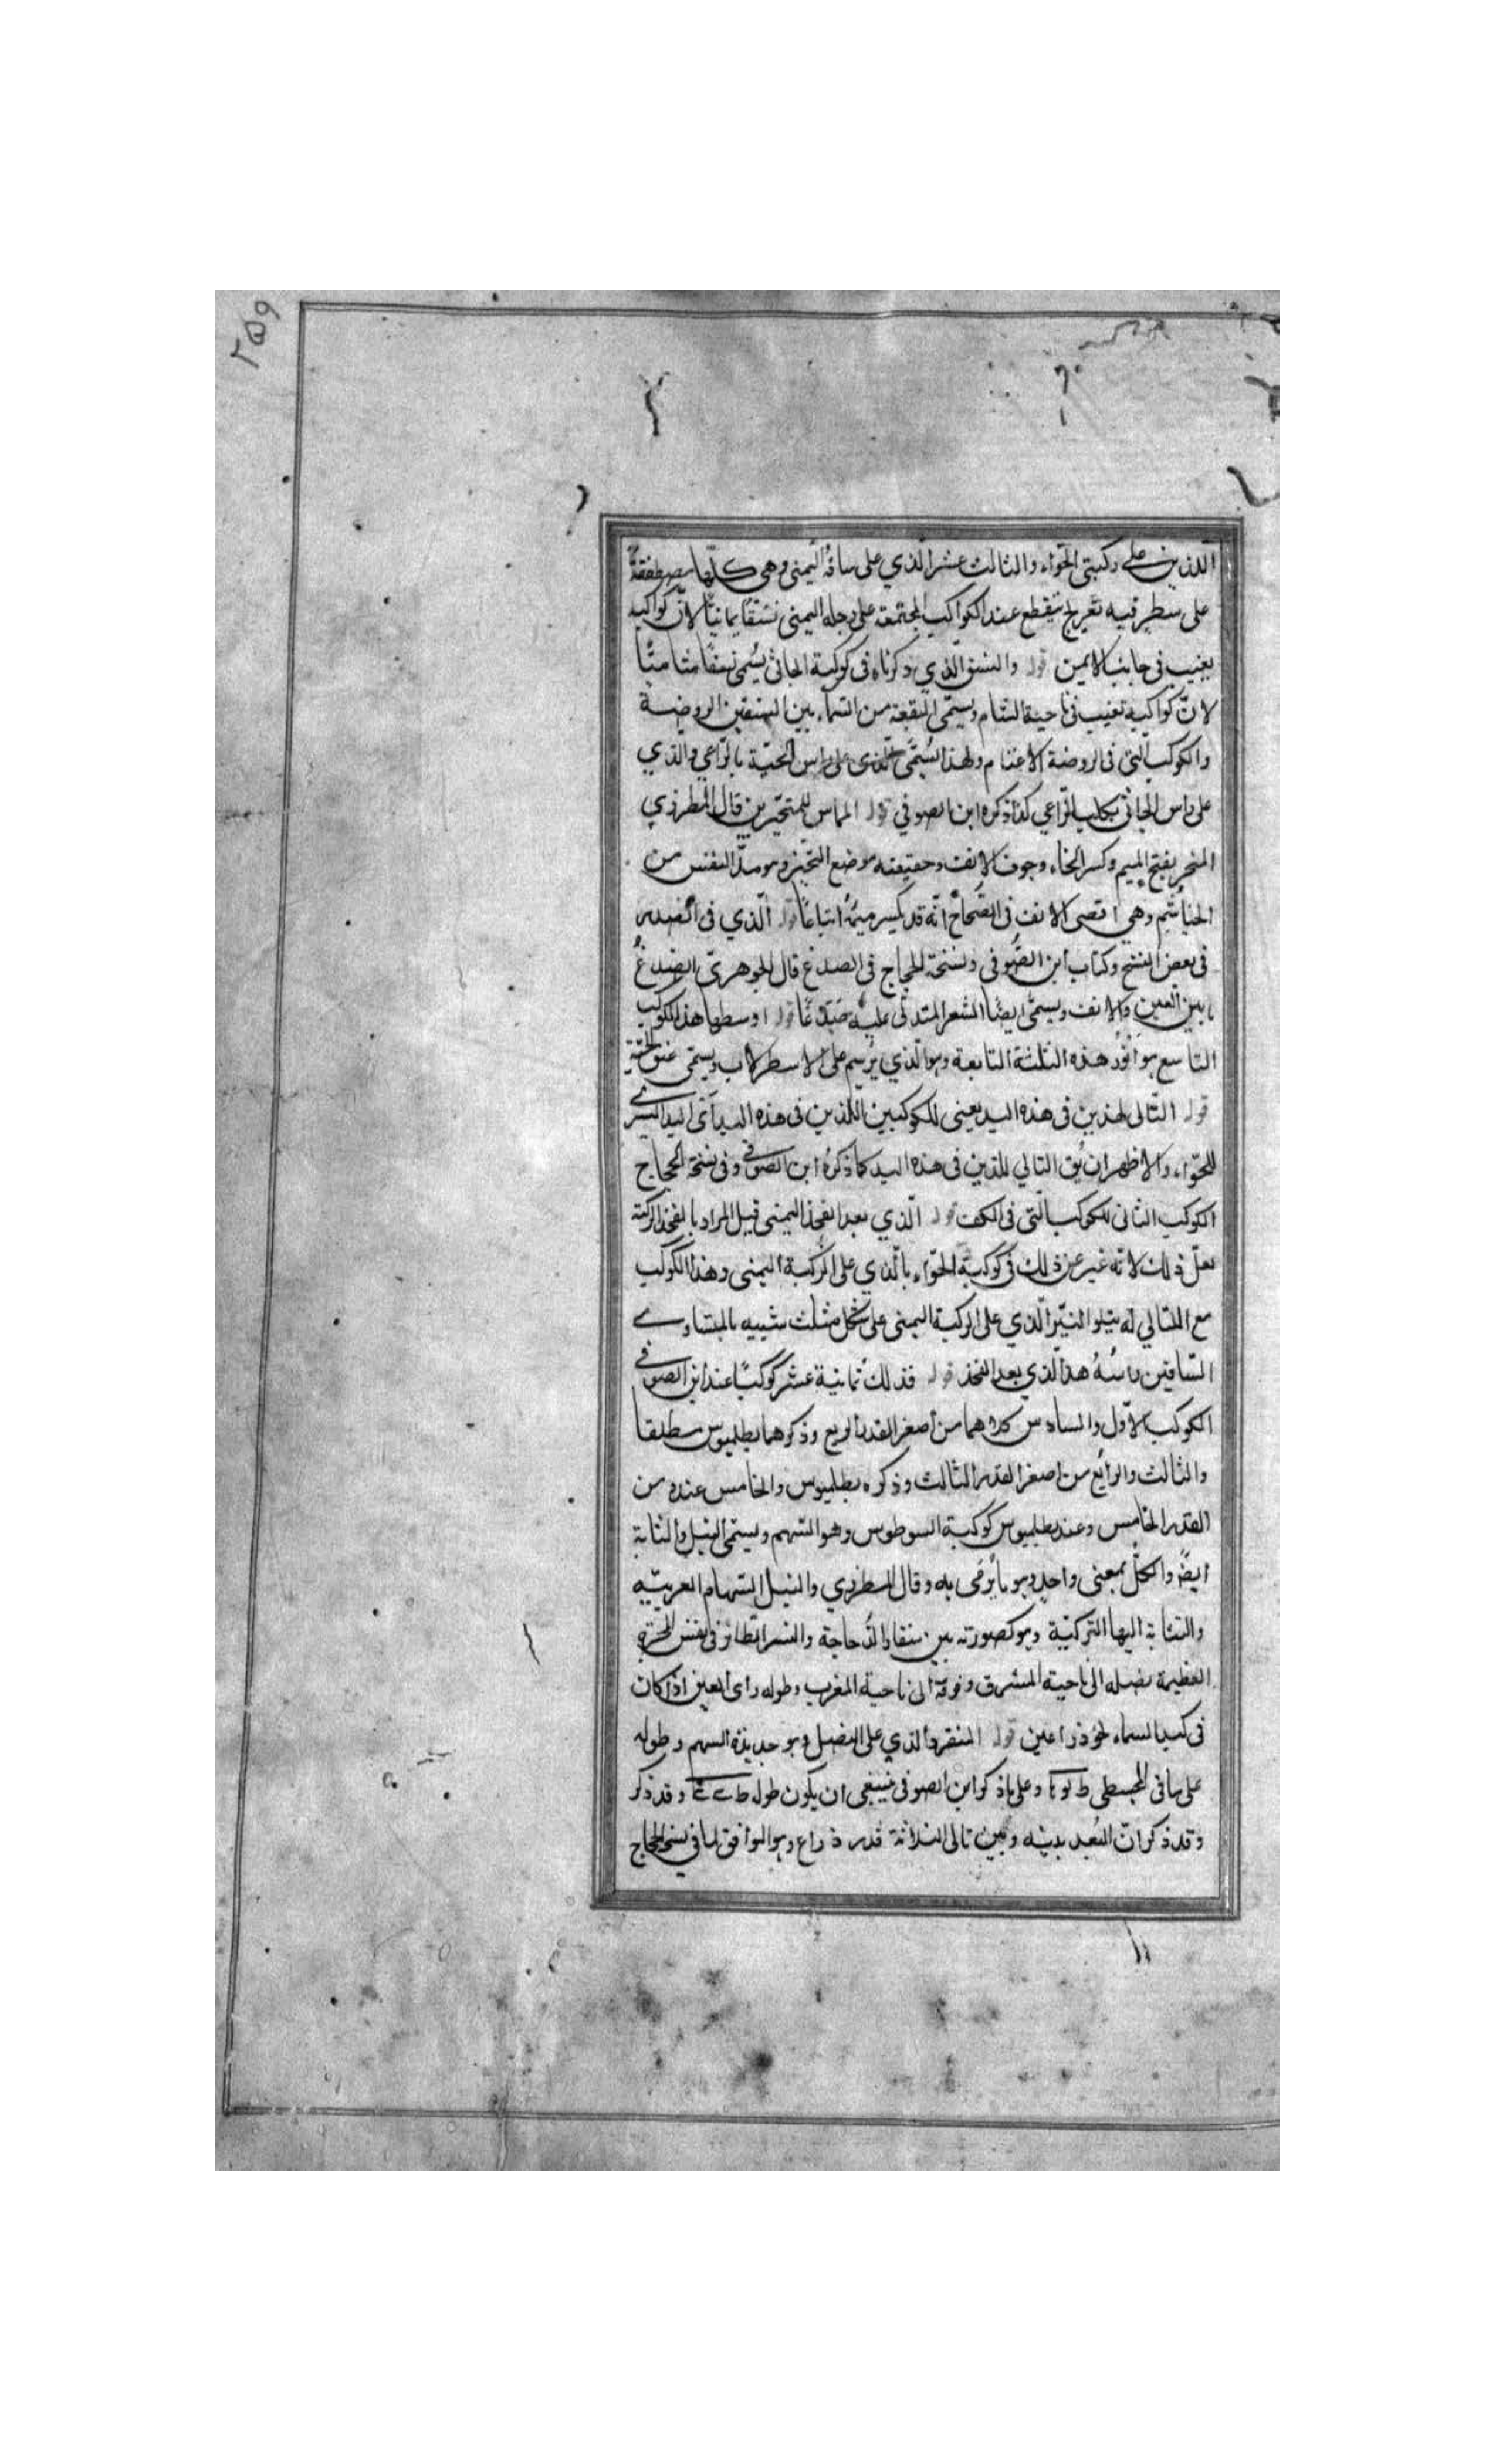 ٢٥٩
اللذين على ركبتي الحوّاء والثالث عشر الذي على ساقه اليمنى وهى كلّها مصطفّة
على سطر فيه تعريج ينقطع عند الكواكب المجتمعة على رجله اليمنى نسقًا يمانيًّا لانّ كواكبه
يغيب فى جانب الايمن قوله والنسق الذي ذكرناه فى كوكبة الجاثى يُسمى نسقًا شاميًّا
لانّ كواكبه تغيب فى ناحية الشام ويسمّى البقعة من السماء بين النسقين الروضة
والكوكب التى فى الروضة الاغنام ولهذا يُسمّى الذى على راس الحيّة بالرّاعي والذي
على راس الجاثى بكلب الرّاعي كذا ذكره ابن الصوفي قوله المماس للمنخرين قال المطرزي
المنخر بفتح الميم وكسر الخاء وجوف الانف وحقيقته موضع النخير وهو مدّ النفس من
الخياشيم وهي اقصى الانف فى الصّحاح انّه قد يكسر ميمُه اتباعًا قوله الّذي فى الصدر
فى بعض النسخ وكتاب ابن الصّوفى ونسخة الحجاج فى الصدغ قال الجوهريّ الصدغُ
ما بين العين والانف ويسمّى ايضًا الشعر المتدلّى عليه صُدغًا قوله اوسطها هذا الكوكب
التاسع هو انور هذه الثلثة التابعة وهو الّذي يُرسم على الاسطرلاب ويسمّى عنق الحيّة
قوله التّالى لهذين فى هذه اليد يعنى للكوكبين اللذين فى هذه اليد اى اليد اليسرى
للحوّاء والاظهر ان يُق التالي للذين فى هذه اليد كما ذكرهُ ابن الصوفى وفى نسخة الحجاج
الكوكب الثانى للكوكب التى فى الكف قوله الّذي بعد الفخذ اليمنى قيل المراد بالفخذ الركبة
لعلّ ذلك لانّه عبر عن ذلك فى كوكبة الحوّاء بالّذي على الرّكبة اليمنى وهذا الكوكب
مع التالي له يتلو النيّر الّذي على الركبة اليمنى على شكل مثلث شبيه بالمتساوى
السّاقين راسُهُ هذا الذي بعد الفخذ قوله فذلك ثمانية عشر كوكبًا عند ابن الصوفى
الكوكب الاوّل والسادس كلاهما من أصغر القدر الرابع وذكرهما بطلميوس مطلقا
والثالث والرابع من اصغر القدر الثالث وذكره بطلميوس والخامس عنده من
القدر الخامس وعند بطلميوس كوكبة السوطوس وهو السّهم ويسمّى النبل والنشابة
ايضًا والكلّ بمعنى واحد وهو ما يُرمى به وقال المطرزي والنبل السّهام العربيّه
والنشابة اليها التركيّة وهو كصورته بين منقار الدّجاجة والنسر الطائر فى نفس المجرّة
العظيمة نصله الى ناحية المشرق وفوقه الى ناحية المغرب وطوله راى العين اذا كان
فى كبد السماء نحو ذراعين قوله المنفرد الّذي على النصل وهو حديدة السهم وطوله
على ما فى المجسطى وعلى ما ذكر ابن الصوفى ينبغى ان يكون طوله وقد ذكر
وقد ذكر انّ البُعد بينه وبين تالى الثلاثة قدر ذراع وهو الموافق لما فى نسخ الحجاج